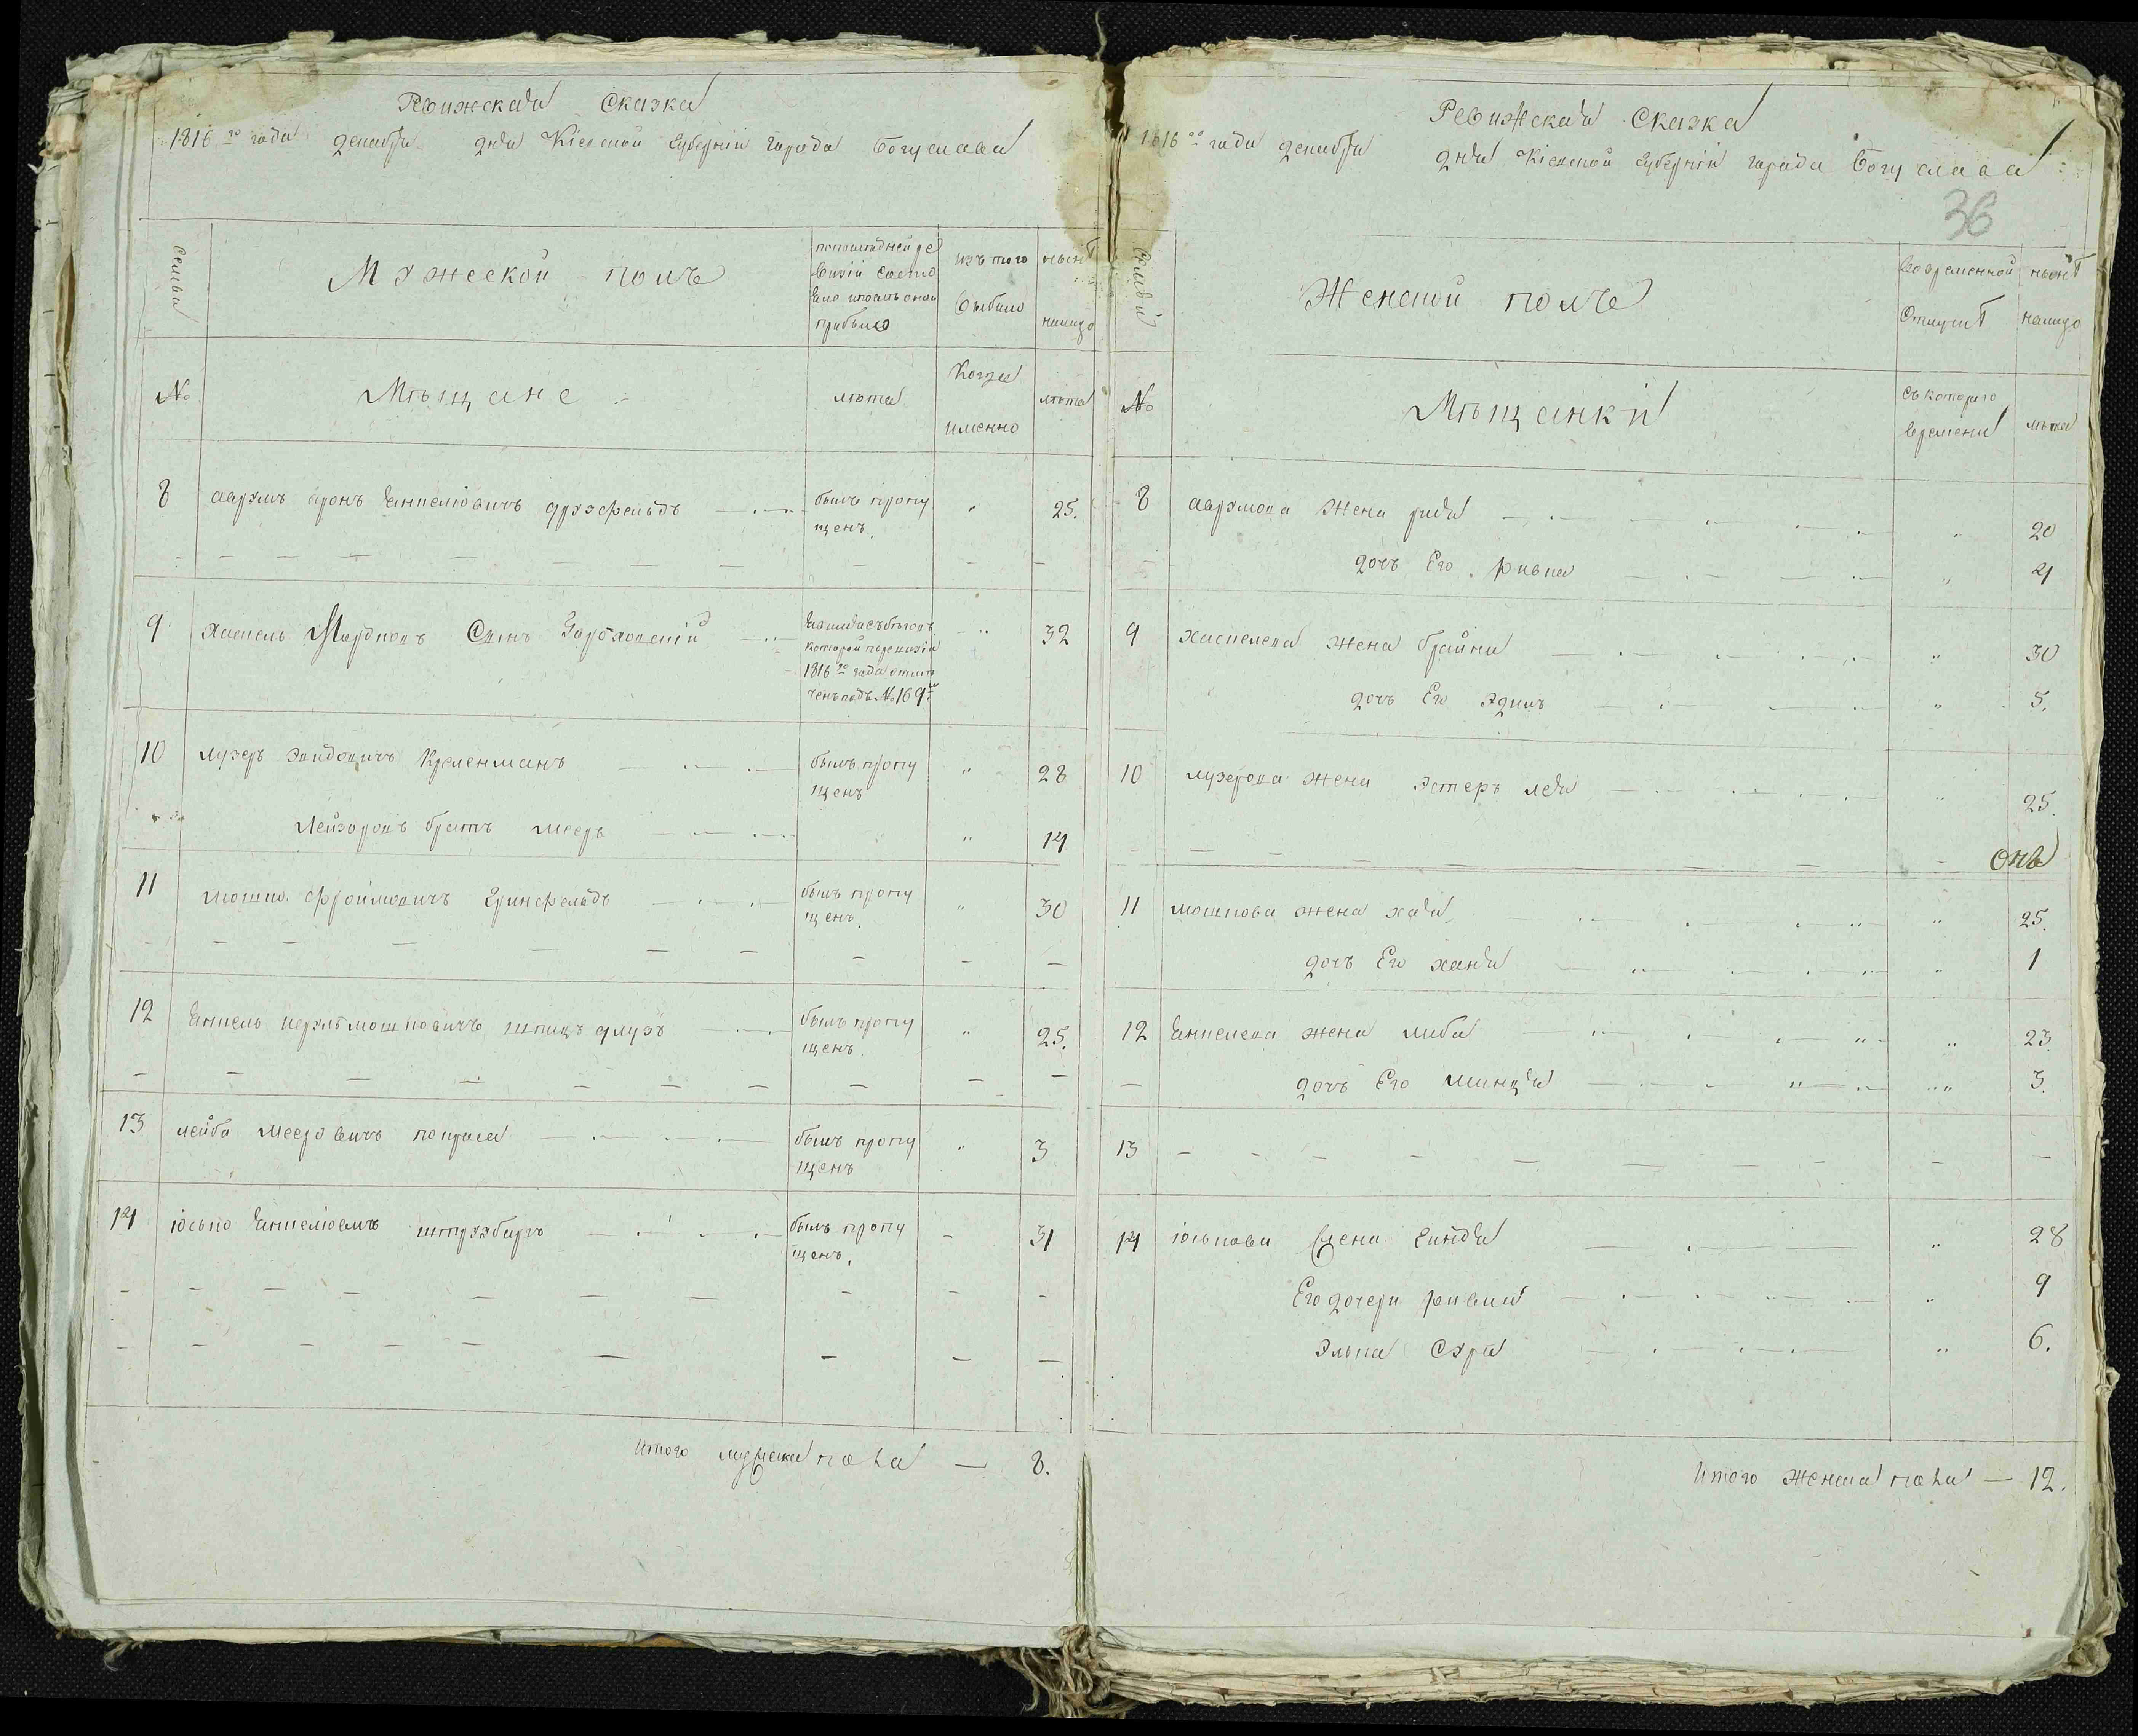 Ревижская Сказка
1816го года декабря дня Кіевской Губерніи города Богуслава
Семьи
Мужеской полъ
попоследней ре
визіи состо
яло ипосле оной
прибыло
изъ того
выбыло
ныне
налицо
№
Мѣщане
лѣта
Когда
именно
лѣта
8 аврумъ аронъ Янкелювичъ друзфельдъ былъ пропу 25.
щенъ.
9 хаскель Мардковъ Сынъ 32
которой поревизіи
1816го года отме
ченъ подъ № 169
10 лузеръ Кременманъ былъ пропу 28
щенъ
Лейзоровъ братъ мееръ 14
11 мошко фроимовичъ Гринфельдъ былъ пропу 30
щенъ.
12 Янкель мошковичъ шпицъ былъ пропу 25.
щенъ.
13 лейба Мееровичъ былъ пропу 3
щенъ
14 іосько Янкелювичъ штрузбергъ былъ пропу 31
щенъ.
Итого мужеска пола — 8.
Ревижская Сказка
1816го года декабря дня Кіевской Губерніи города Богуслава
36
Семьи
Женской полъ
Вовременной
Отлучкѣ
ныне
налицо
№
Мѣщанки
съ которого
времени
лѣта
8 аврумова жена рися 20
дочь Его ривка 4
9 хаскелева жена брайна 30
дочь Его эдиль 5.
10 лузерова жена эстеръ лея 25.
11 мошкова жена хая 25.
дочь Его хана 1
12 Янкелева жена либа 23.
дочь Его минця 3.
13
14 іоськова жена гиндя 28
Его дочери ривка 9
элька Сура 6.
Итого женска пола — 12.